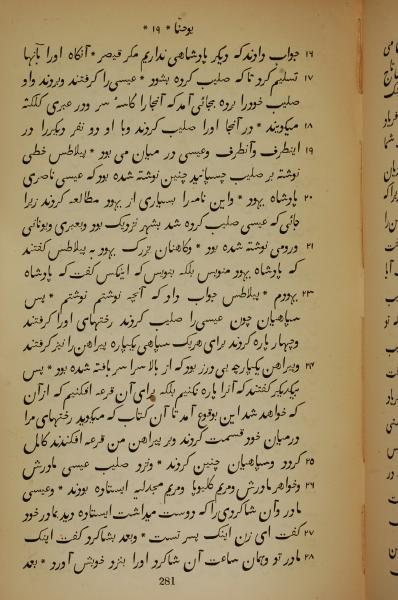 یوحنا * ۱۹ *
۱۶ جواب دادند که دیگر پادشاهی نداریم مگر قیصر * آنگاه اورا بآنها
۱۷ تسلیم کرد تا که صلیب کرده بشود * عیسی را گرفتند وبردند واو
صلیب خودرا برده بجائی آمد که آنجارا کاسهٔ سر ودر عبری کلکته
۱۸ میگویند * در آنجا اورا صلیب کردند وبا او دو نفر دیگررا در
۱۹ اینطرف وآنطرف وعیسی در میان می بود * پیلاطس خطی
نوشته بر صلیب چسپانید چنین نوشته شده بود که عیسی ناصری
۲۰ پادشاه یهود * واین نامه را بسیاری از یهود مطالعه کردند زیرا
جائی که عیسی صلیب کرده شد بشهر نزدیک بود وبعبری ویونانی
۲۱ ورومی نوشته شده بود * وکاهنان بزرگ یهود به پیلاطس گفتند
که پادشاه یهود منویس بلکه بنویس که اینکس گفت که پادشاه
۲۳ یهودم * پیلاطس جواب داد که آنچه نوشتم نوشتم * پس
سپاهیان چون عیسی را صلیب کردند رختهای اورا گرفتند
وچهار پاره کردند برای هریک سپاهی یکپاره پیراهن را نیز گرفتند
۲۴ وپیراهن یکپارچه بی درز بود که از بالا سراسر بافته شده بود * پس
بیکدیگر گفتند که آنرا پاره نکنیم بلکه برای آن قرعه افکنیم که از آن
که خواهد شد این بوقوع آمد تا آن کتاب که میگوید رختهای مرا
درمیان خود قسمت کردند وبر پیراهن من قرعه افکندند کامل
۲۵ گردد وسپاهیان چنین کردند * ونزد صلیب عیسی مادرش
۲۶ وخواهر مادرش ومریم کلیوپا ومریم مجدلیه ایستاده بودند * وعیسی
مادر وآن شاگردی را که دوست میداشت ایستاده دید بمادر خود
۲۷ گفت ای زن اینک پسر تست * وبعد بشاگرد گفت اینک
۲۸ مادر تو وهمان ساعت آن شاگرد اورا بنزد خویش آورد * بعد
281